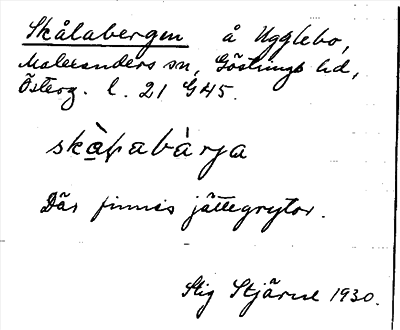 Skålabergen å Ugglebo,
Malexanders sn, Göstrings hd,
Österg. l. 21 G45.
skàɫabàrja
Där finnes jättegrytor.
Stig Stjärne 1930.